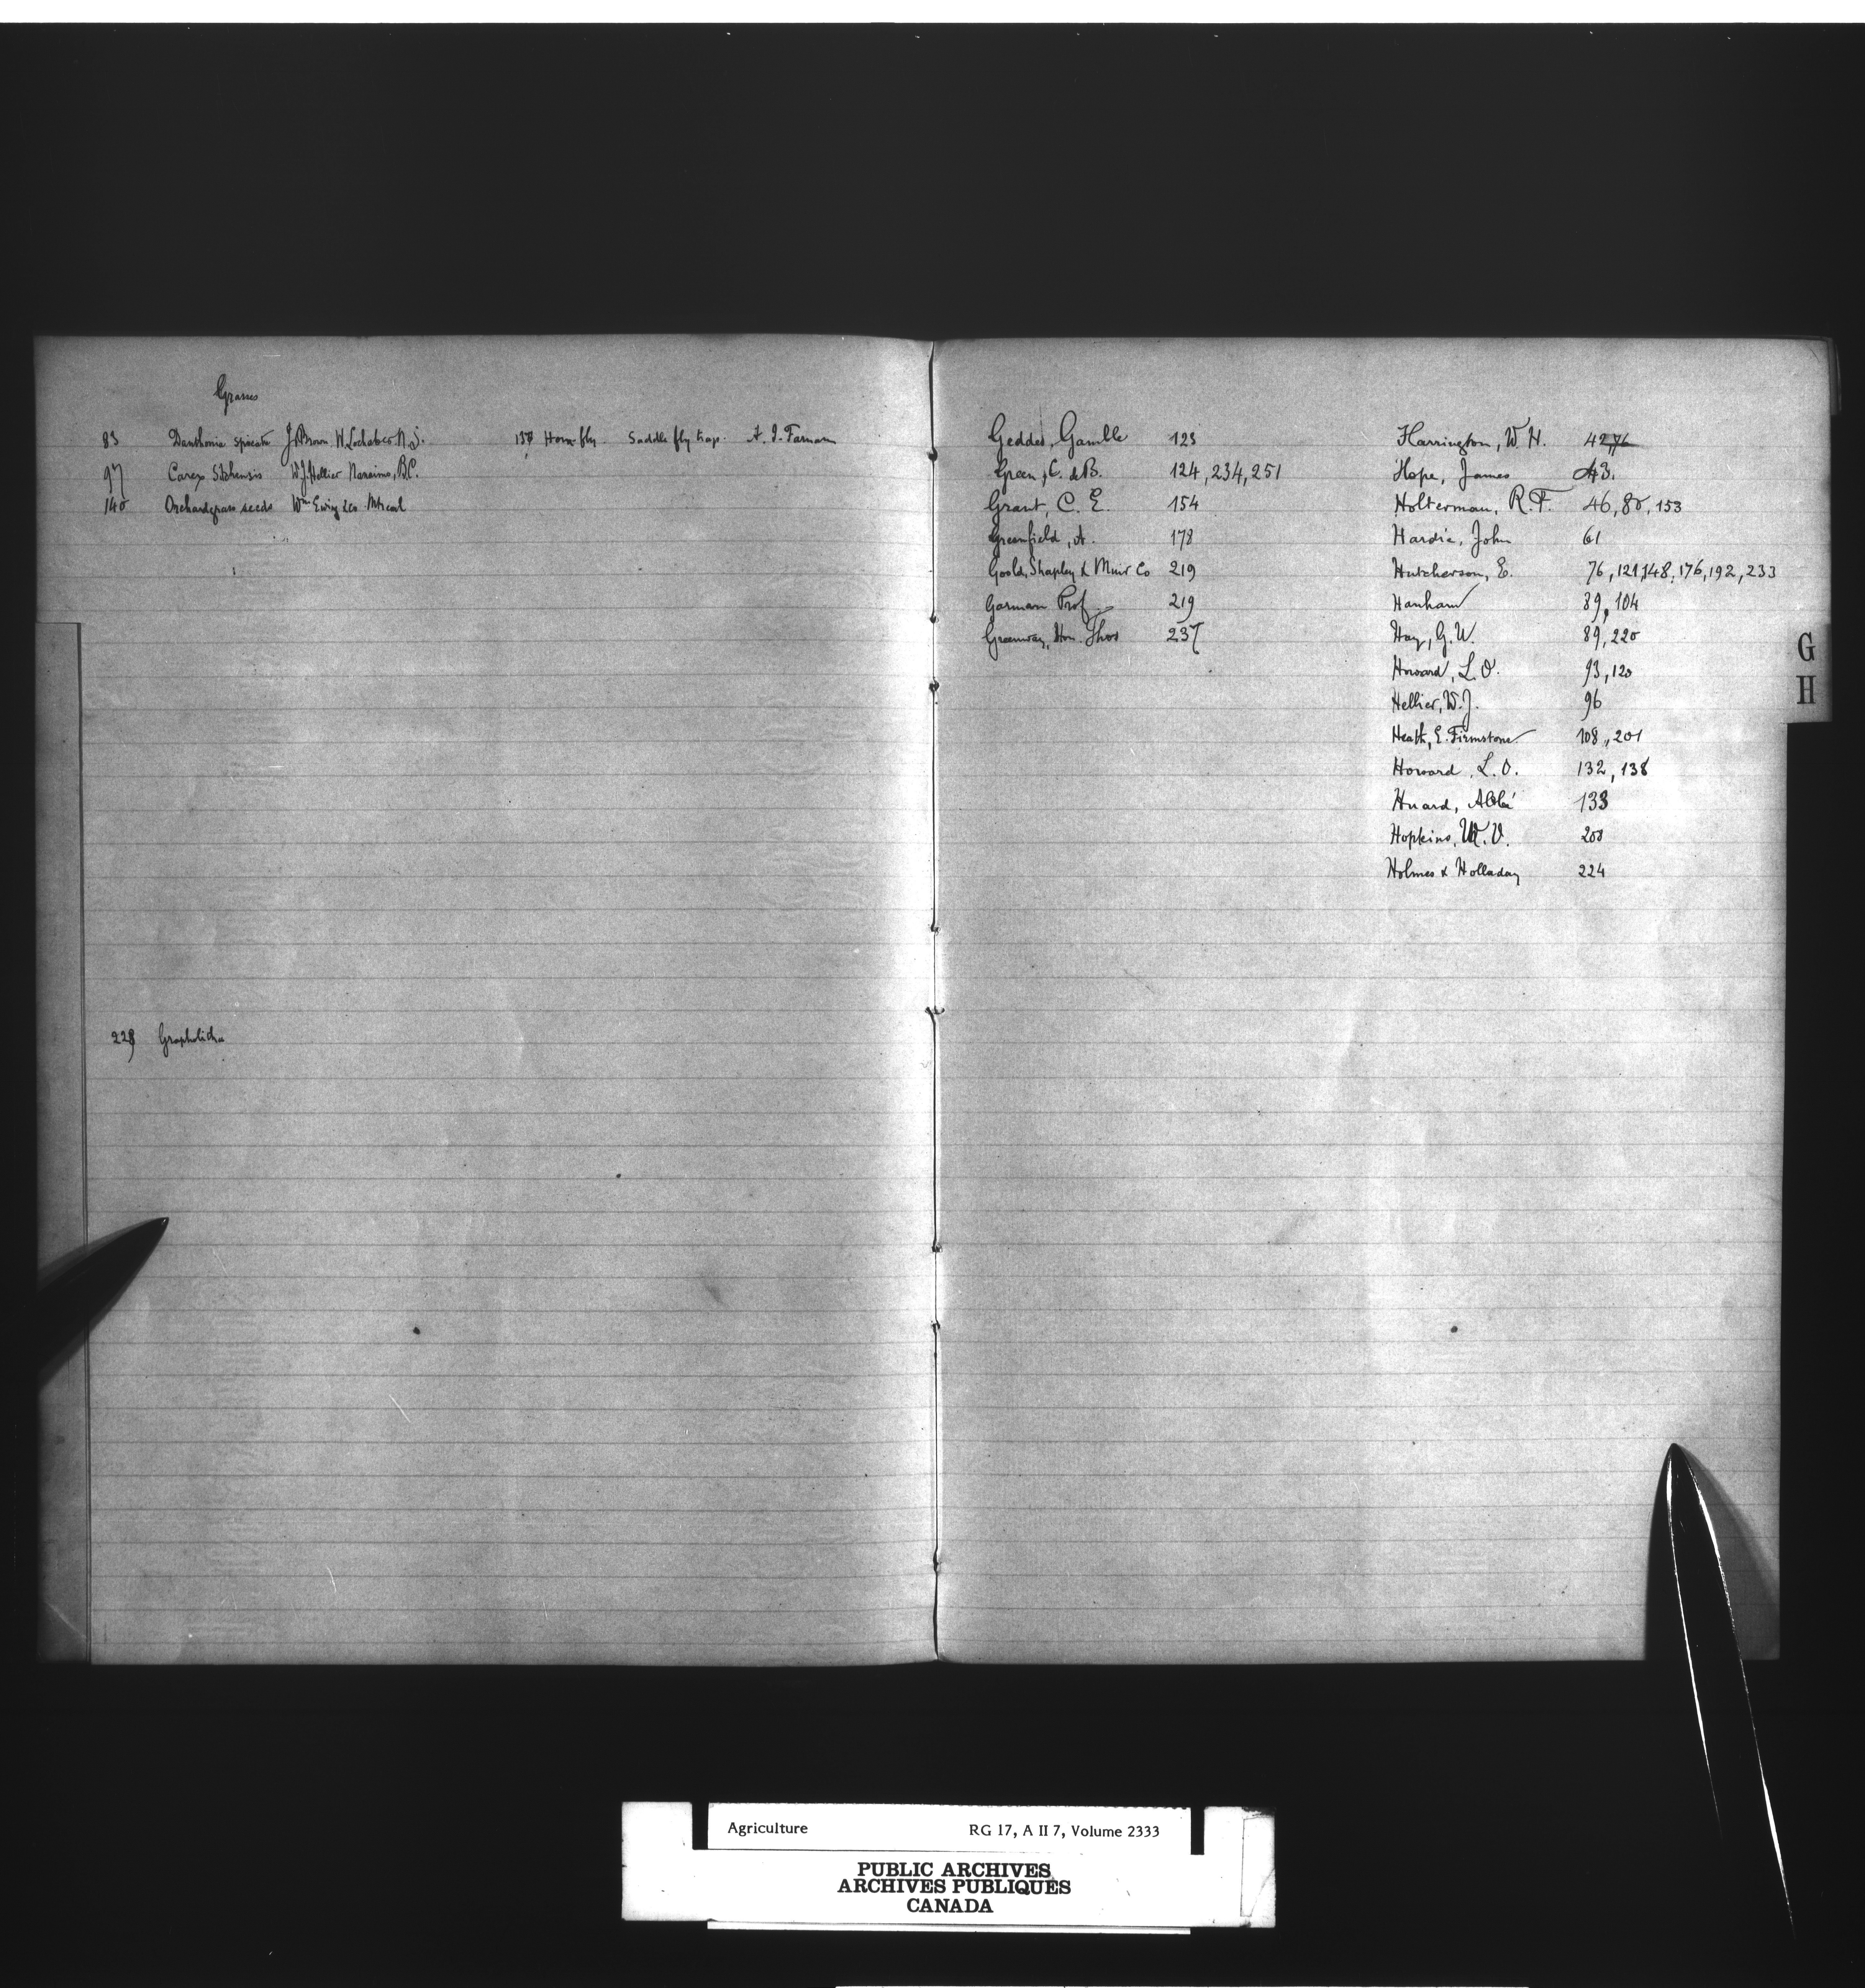 Grasses
83 Danthonia spicata J. Brown W. Lochaber N.S.
97 Carex Sitchensis W.J. Hellier Nanaimo, B.C.
140 Orchardgrass seeds Wm Ewing & Co. Mtreal
137 Horn fly Saddle fly trap. A. I. Farnam
229 Grapholitha
Geddes, Gamble 123
Green, C. de B. 124, 234, 251
Grant, C. E. 154
Greenfield, A. 178
Goold, Shapley & Muir Co 219
Garman Prof. 219
Greenway, Hon. Thos 237
Harrington, W. H. 42, 76
Hope, James 43.
Holterman, R.F. 46, 80, 153
Hardie, John 61
Hutcherson, E. 76, 121, 148, 176, 192, 233
Hanham 89, 104
Hay, G.W. 89, 220
Howard, L.O. 93, 120
Hellier, W.J. 96
Heath, E. Firmstone 108, 201
Howard, L.O. 132, 138
Huard, Abbé 133
Hopkins, W. V. 200
Holmes & Holladay 224
G
H
Agriculture RG 17, A II 7, Volume 2333
PUBLIC ARCHIVES
ARCHIVES PUBLIQUES
CANADA